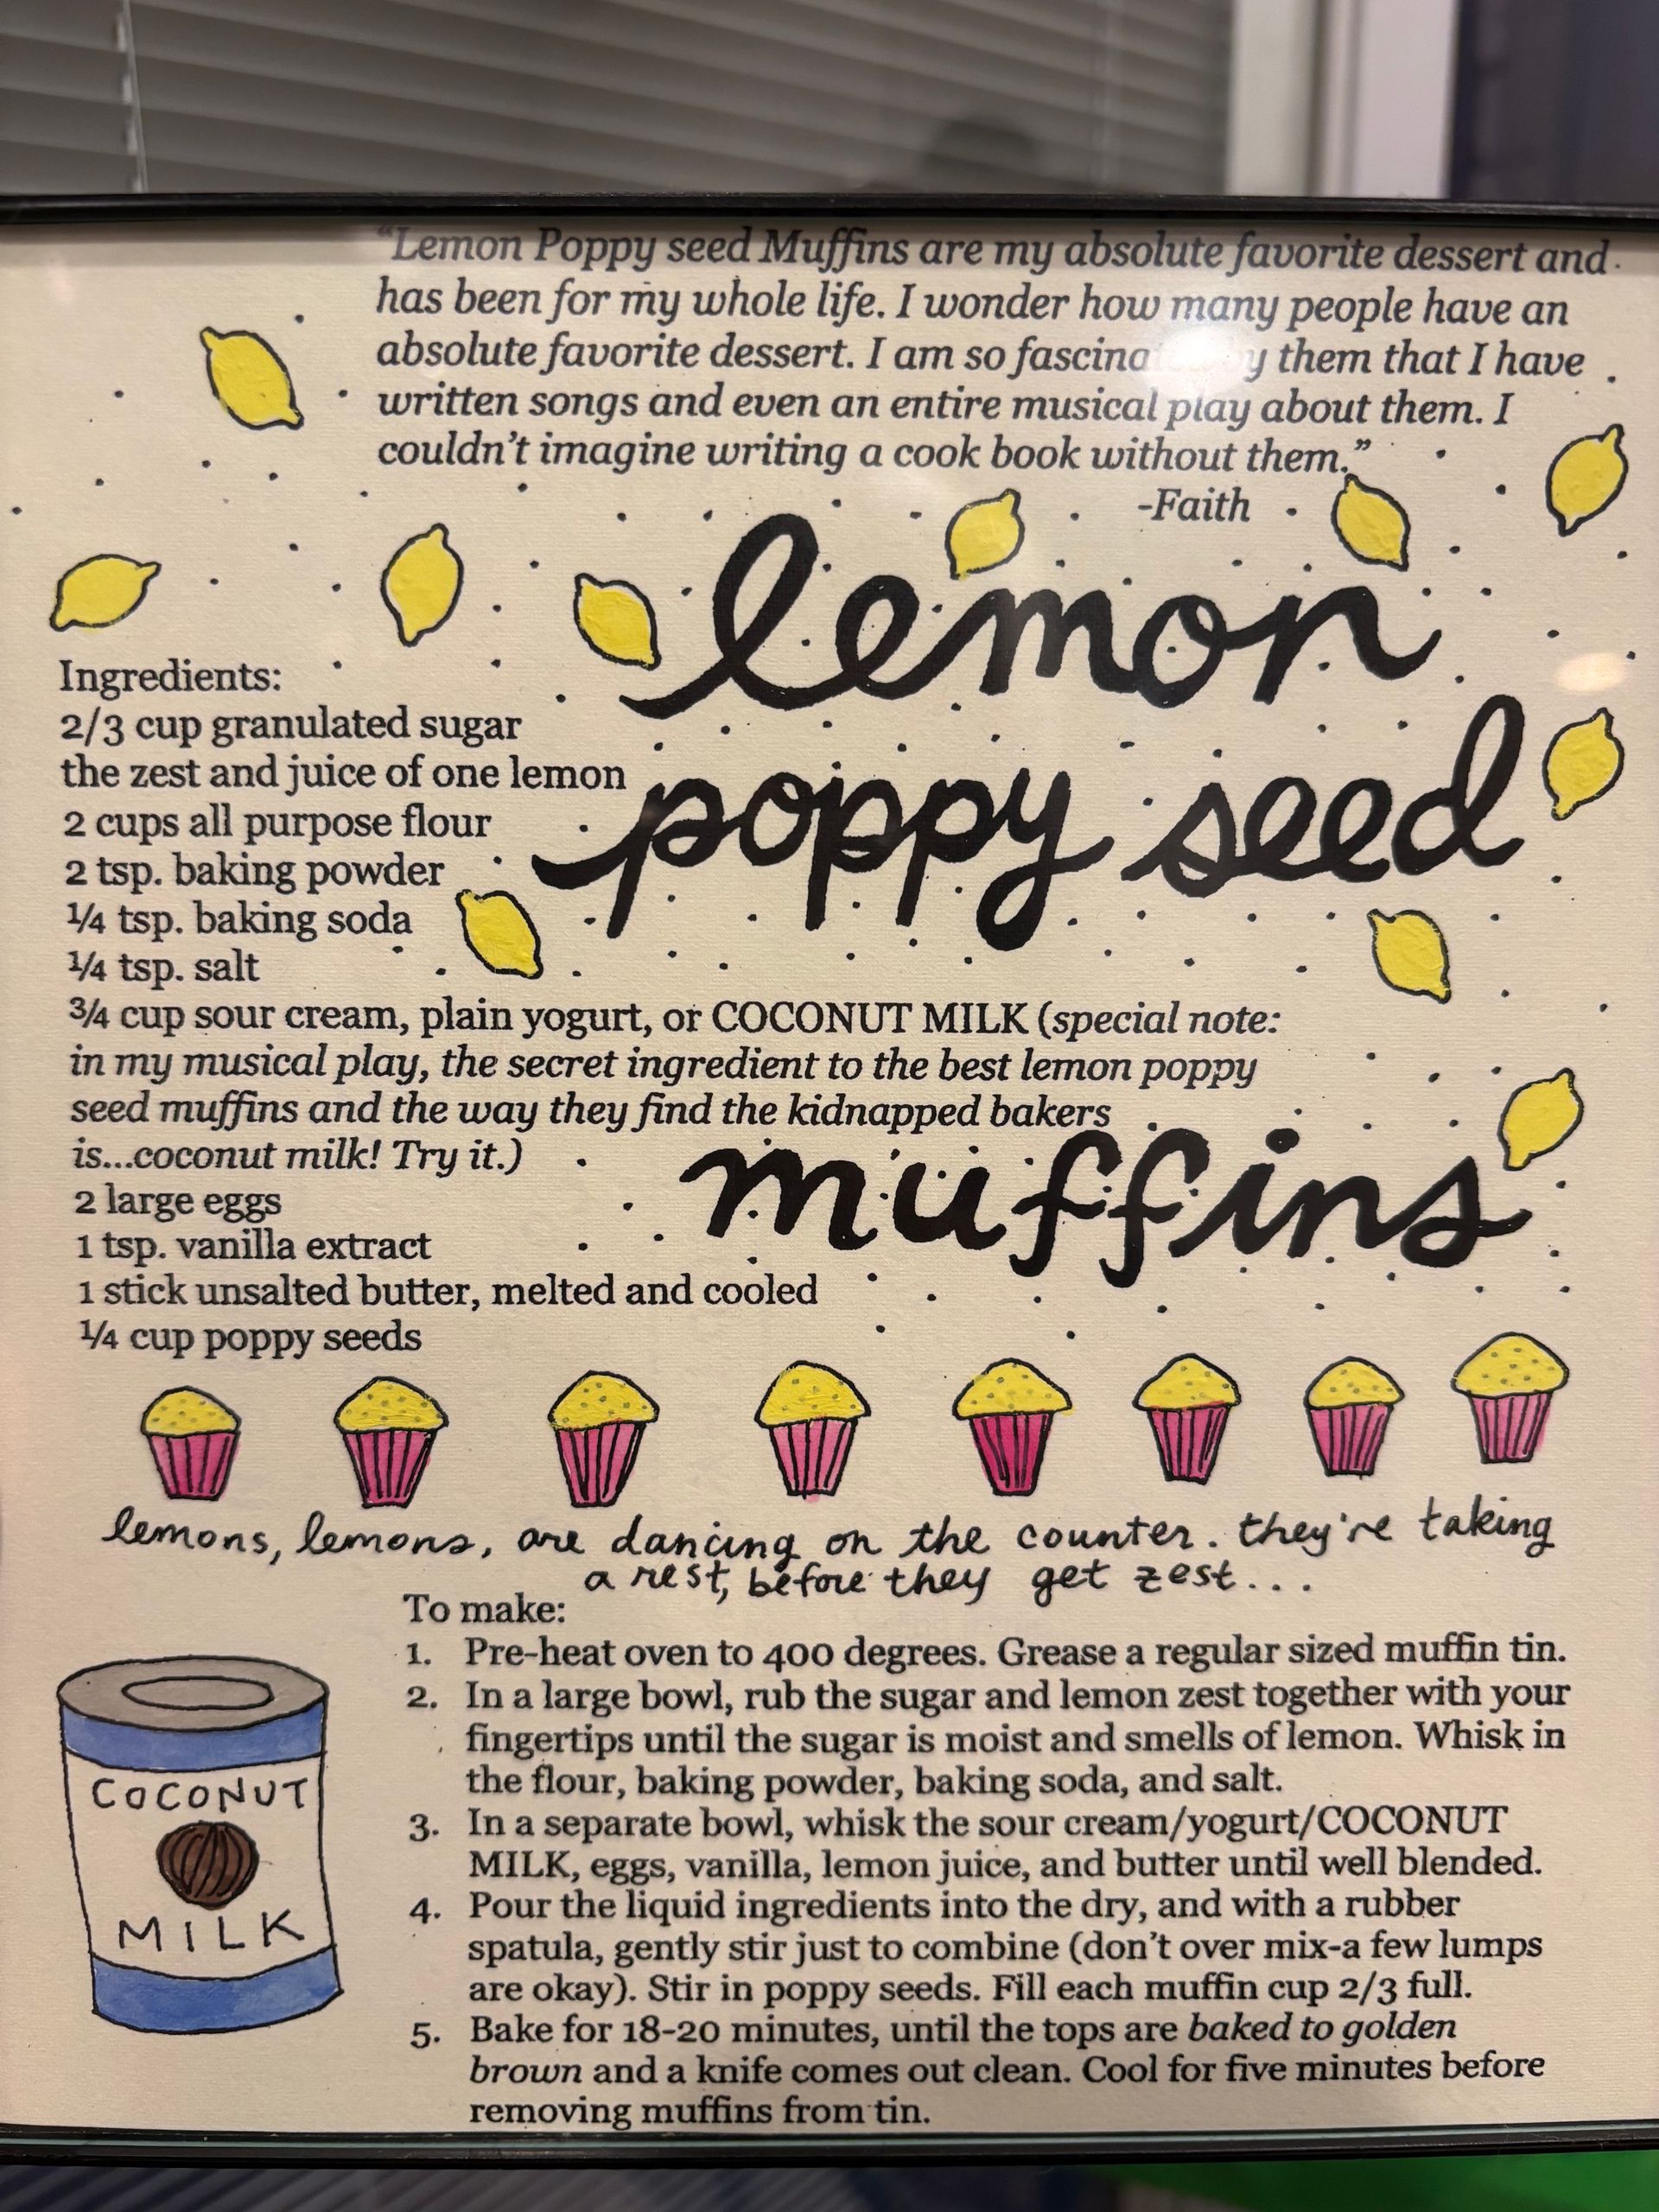 "Lemon Poppy seed Muffins are my absolute favorite dessert and
has been for my whole life. I wonder how many people have an
absolute favorite dessert. I am so them that I have
written songs and even an entire musical play about them. I
couldn't imagine writing a cook book without them."
-Faith
lemon
poppy seed
muffins
Ingredients:
2/3 cup granulated sugar
the zest and juice of one lemon
2 cups all purpose flour
2 tsp. baking powder
¼ tsp. baking soda
¼ tsp. salt
¾ cup sour cream, plain yogurt, or COCONUT MILK (special note:
in my musical play, the secret ingredient to the best lemon poppy
seed muffins and the way they find the kidnapped bakers
is...coconut milk! Try it.)
2 large eggs
1 tsp. vanilla extract
1 stick unsalted butter, melted and cooled
¼ cup poppy seeds
lemons, lemons, are dancing on the counter. they're taking
a rest, before they get zest...
To make:
1. Pre-heat oven to 400 degrees. Grease a regular sized muffin tin.
2. In a large bowl, rub the sugar and lemon zest together with your
fingertips until the sugar is moist and smells of lemon. Whisk in
the flour, baking powder, baking soda, and salt.
3. In a separate bowl, whisk the sour cream/yogurt/COCONUT
MILK, eggs, vanilla, lemon juice, and butter until well blended.
4. Pour the liquid ingredients into the dry, and with a rubber
spatula, gently stir just to combine (don't over mix-a few lumps
are okay). Stir in poppy seeds. Fill each muffin cup 2/3 full.
5. Bake for 18-20 minutes, until the tops are baked to golden
brown and a knife comes out clean. Cool for five minutes before
removing muffins from tin.
COCONUT
MILK